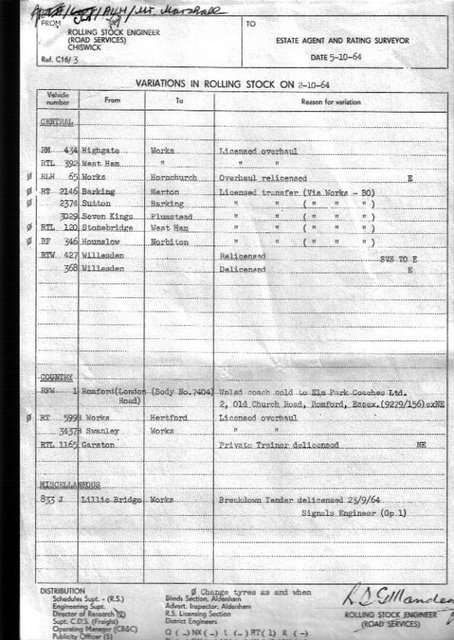 Mr Marshall
FROM
ROLLING STOCK ENGINEER
(ROAD SERVICES)
CHISWICK
Ref. C16/ 3
TO
ESTATE AGENT AND RATING SURVEYOR
DATE 5-10-64
VARIATIONS IN ROLLING STOCK ON 2-10-64
Vehicle number From To Reason for variation
CENTRAL
RM 434 Highgate Works Licensed overhaul
RTL 392 West Ham " " "
Ø RLH 65 Works Hornchurch Overhaul relicensed E
Ø RT 2146 Barking Merton Licensed transfer (Via Works - BO)
Ø 2374 Sutton Barking " " ( " " " )
3029 Seven Kings Plumstead " " ( " " " )
Ø RTL 120 Stonebridge West Ham " " ( " " " )
Ø RF 346 Hounslow Norbiton " " ( " " " )
RTW 427 Willesden Relicensed SVS TO E
368 Willesden Delicensed E
COUNTRY
RFW 1 Romford(London Road) (Body No.7404) Unlsd coach sold to Elm Park Coaches Ltd.
2, Old Church Road, Romford, Essex.(9279/156)exNE
Ø RT 599 Works Hertford Licensed overhaul
3437 Swanley Works " "
RTL 1165 Garston Private Trainer delicensed NE
MISCELLANEOUS
833 J Lillie Bridge Works Breakdown Tender delicensed 23/9/64
Signals Engineer (Gp.1)
DISTRIBUTION
Schedules Supt. - (R.S.)
Engineering Supt.
Director of Research (2)
Supt. C.D.S. (Freight)
Operating Manager (CB&C)
Publicity Officer (5)
Ø Change tyres as and when
Blinds Section, Aldenham
Advert. Inspector, Aldenham
R.S. Licensing Section
District Engineers
Q (-) NX (-) L (-) HT(1) R (-)
ROLLING STOCK ENGINEER
(ROAD SERVICES)